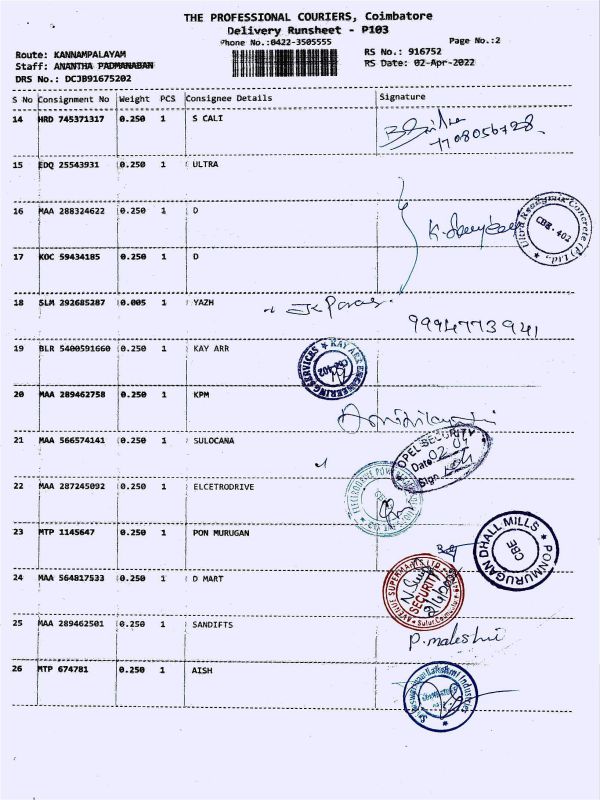 THE PROFESSIONAL COURIERS, Coimbatore
Delivery Runsheet - P103
Phone No.:0422-3505555
Page No.:2
Route: KANNAMPALAYAM
RS No.: 916752
Staff: ANANTHA PADMANABAN
RS Date: 02-Apr-2022
DRS No.: DCJB91675202
S No Consignment No Weight PCS Consignee Details Signature
14 HRD 745371317 0.250 1 S CALI
7708056728
15 EDQ 25543931 0.250 1 ULTRA
16 MAA 288324622 0.250 1 D
Ultra Readymix Concrete (P) Ltd., CBE. 402
17 KOC 59434185 0.250 1 D
18 SLM 292685287 0.005 1 YAZH
9994773941
19 BLR 5400591660 0.250 1 KAY ARR
KAY ARR ENGINEERING SERVICES CBE-402
20 MAA 289462758 0.250 1 KPM
21 MAA 566574141 0.250 1 SULOCANA
OPEL SECURITY
Date 02/04
Sign
22 MAA 287245092 0.250 1 ELCETRODRIVE
ELECTRODRIVE
23 MTP 1145647 0.250 1 PON MURUGAN
PONMURUGAN DHALL MILLS CBE
24 MAA 564817533 0.250 1 D MART
AVENUE SUPERMARTS LTD
SECURITY
25 MAA 289462501 0.250 1 SANDIFTS
26 MTP 674781 0.250 1 AISH
Industries